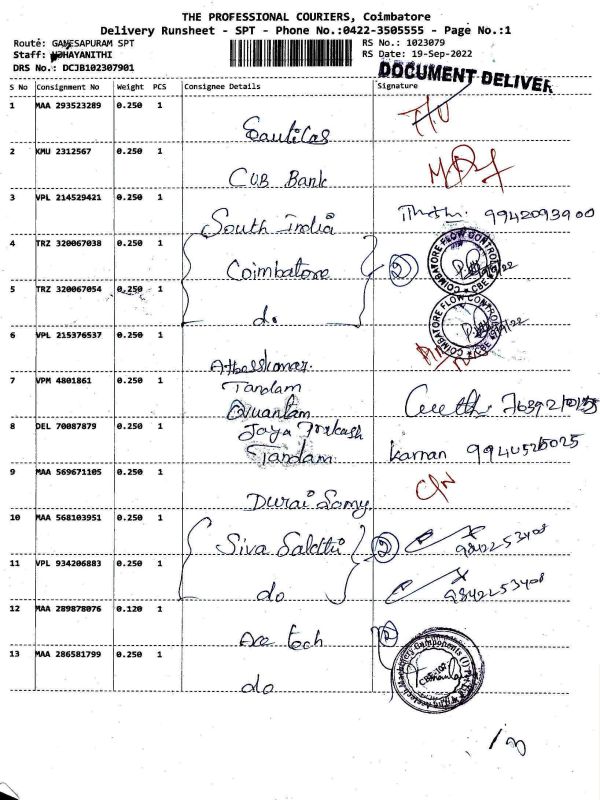 THE PROFESSIONAL COURIERS, Coimbatore
Delivery Runsheet - SPT - Phone No.:0422-3505555 - Page No.:1
Route: GANESAPURAM SPT
RS No.: 1023079
Staff: UDHAYANITHI
RS Date: 19-Sep-2022
DRS No.: DCJB102307901
DOCUMENT DELIVER
S No Consignment No Weight PCS Consignee Details Signature
1 MAA 293523289 0.250 1
2 KMU 2312567 0.250 1 CUB Bank
3 VPL 214529421 0.250 1 South India 9942093900
4 TRZ 320067038 0.250 1 Coimbatore 2
COIMBATORE FLOW CONTROL
5 TRZ 320067054 0.250 1 do
COIMBATORE FLOW CONTROL
6 VPL 215376537 0.250 1
7 VPM 4801861 0.250 1 Tandam
8 DEL 70087879 0.250 1 Jaya Prakash
Tandam Karnan
9 MAA 569671105 0.250 1 Durai Samy C/N
10 MAA 568103951 0.250 1 Siva Sakthi 2 9842253408
11 VPL 934206883 0.250 1 do 9842253408
12 MAA 289878076 0.120 1 Axe tech 2
13 MAA 286581799 0.250 1 do